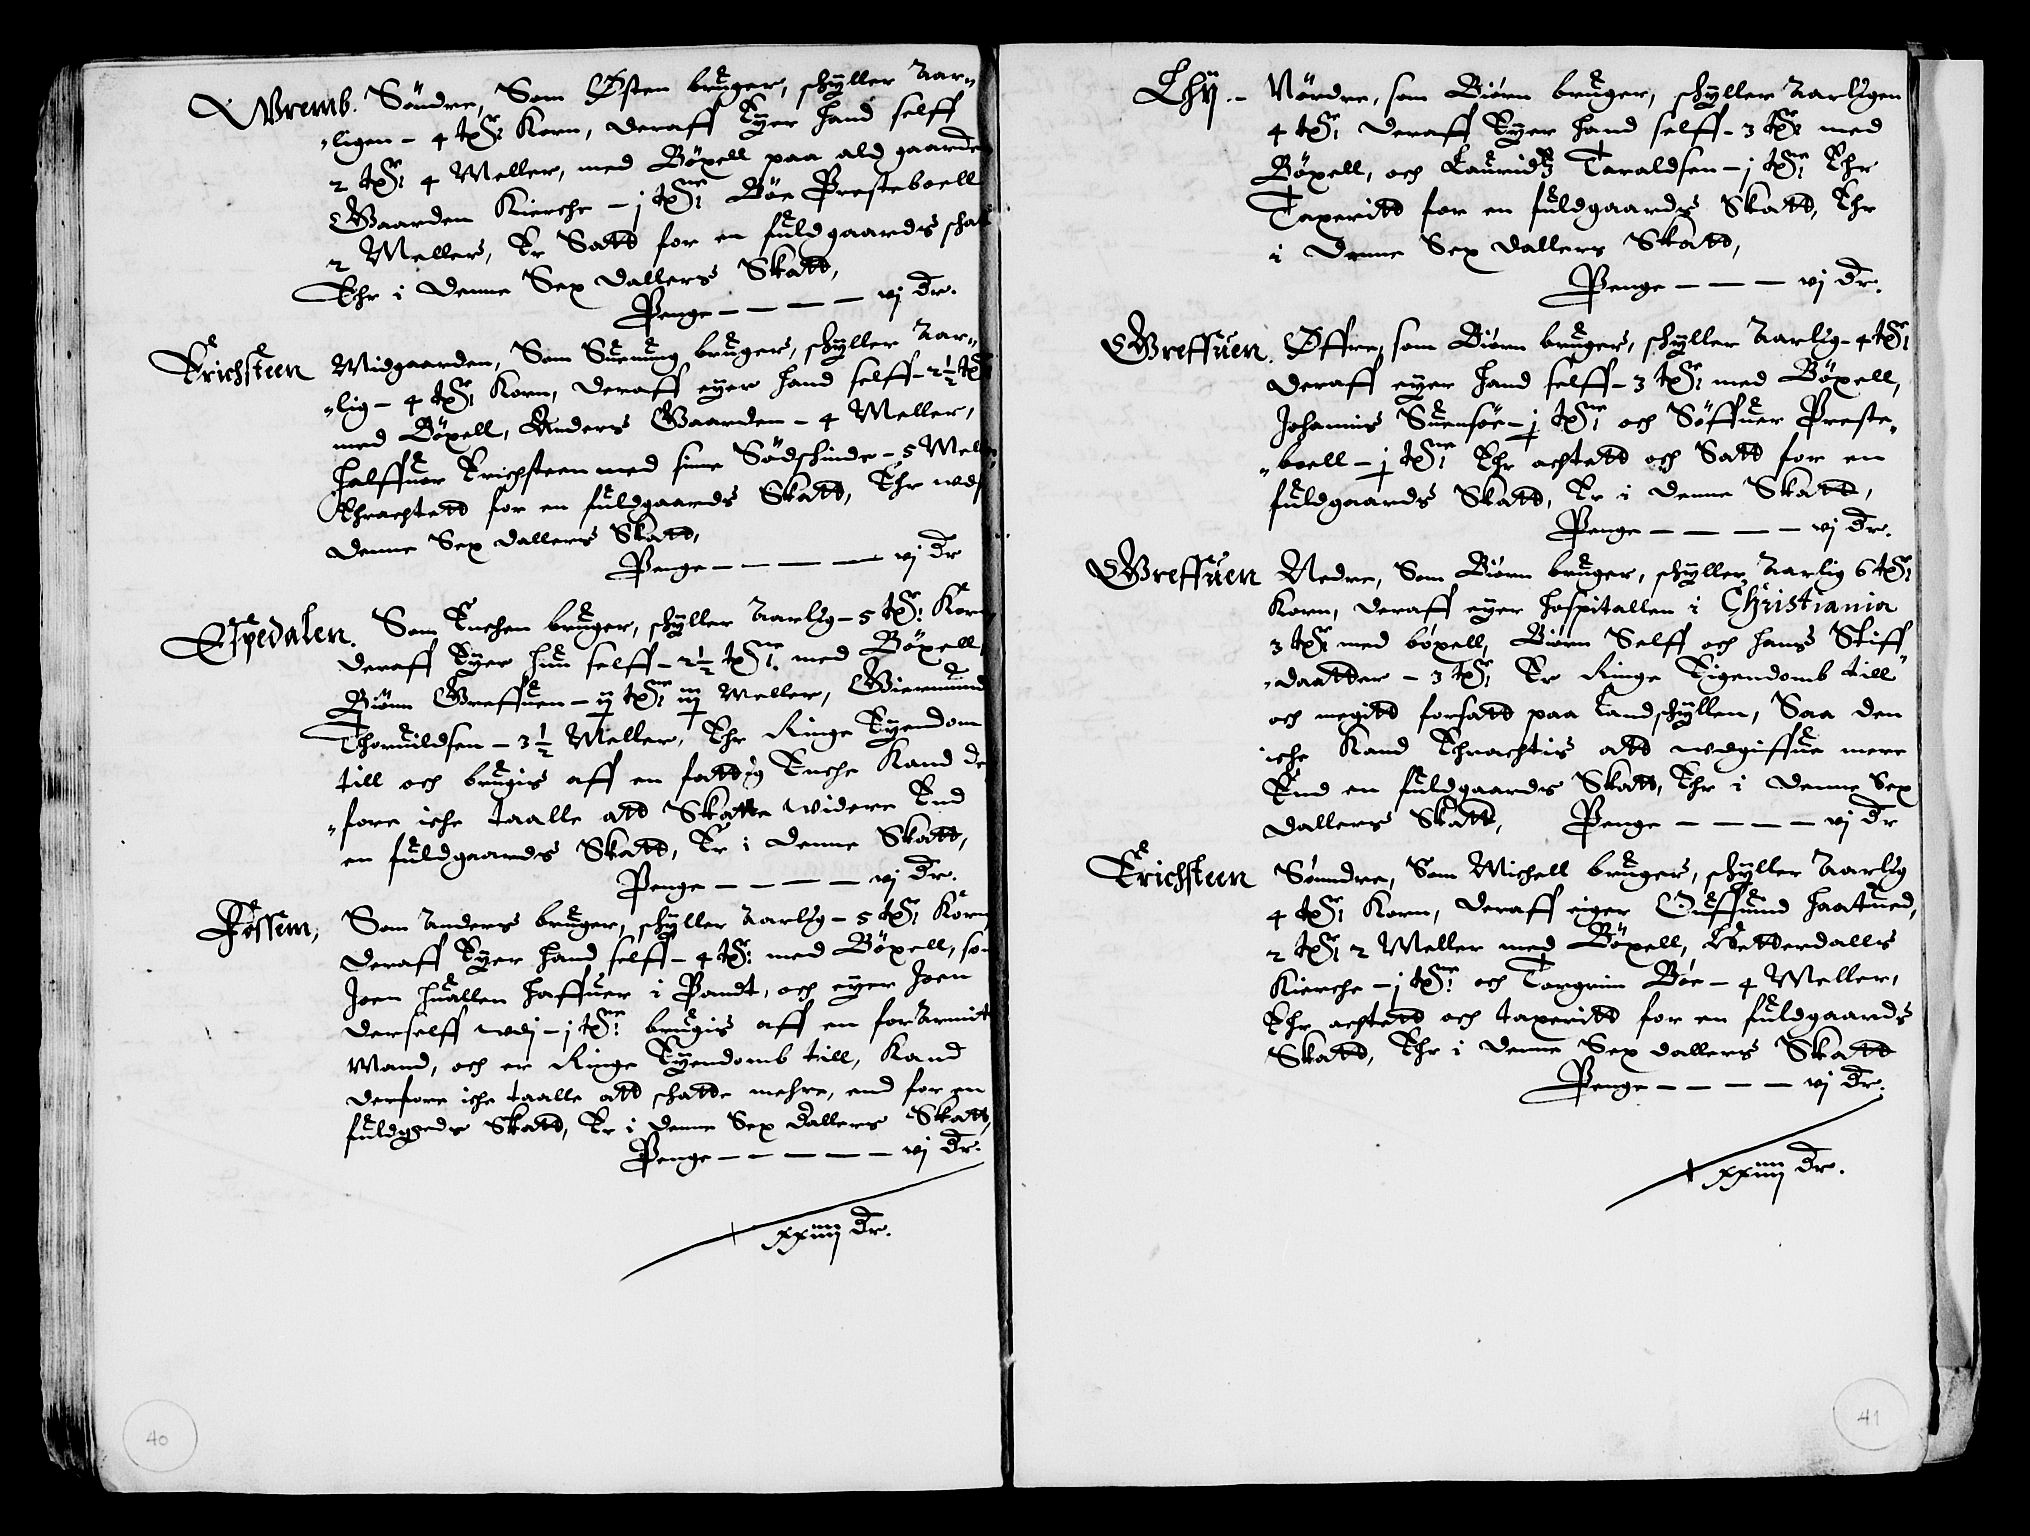 Wremb. Söndre, Som Østen bruger, schÿller Aar-
ligen - 4 tr: Korn, deraff Eÿer hand selff
2 tr: 4 Meller, med Böxell paa ald gaarden
Gaarden Kierche - j tr: Böe Presteboell
2 Mellers, Er Satt for en fuldgaards schat
Ehr i denne Sex dallers Skatt,
Penge - - - - vj dr.
Erichsteen Midgaarden, Som Suenung bruger, schÿller Aar-
lig - 4 tr: Korn, deraff eÿer hand selff - 2½ tr
med Böxell, Anders Gaarden - 4 Meller,
Halffuor Erichsteen med sine Södschinde - 5 Meller
Ehrachtett for en fuldgaards Skatt, Ehr udj
denne Sex dallers Skatt,
Penge - - - - - vj dr
Espedalen. Som Enchen bruger, schÿller Aarlig - 5 tr: Korn
deraff Eÿer hun selff - 2½ tr: med Böxell,
Biönn Greffuen - ij tr: iiij Meller, Giermund
Thoruildsen - 3½ Meller, Ehr Ringe Eÿendom
till och brugis aff en fattig Enche Kand der
fore iche taalle att Skatte widere End
en fuldgaards Skatt, Er i denne Skatt,
Penge - - - - vj dr.
Fossem, Som Anders bruger, schÿller Aarlig - 5 tr: Korn
deraff Eÿer hand selff - 4 tr: med Böxell, som
Joen Huallen haffuer i Pandt, och eÿer Joen
derselff udj - j tr: brugis aff en forarmit
Mand, och er Ringe Eÿendomb till, Kand
derfore iche taalle att schatte mehre, end for en
fuldgrds Skatt, Er i denne Sex dallers Skatt,
Penge - - - - - vj dr.
xxiiij dr.
40
Lhÿ. - Nördre, som Biörn bruger, schÿller Aarligen
4 tr: deraff Eÿer hand selff - 3 tr: med
Böxell, och Lauridtz Taraldsen - j tr: Ehr
Taxeritt for en fuldgaards Skatt, Ehr
i denne Sex dallers Skatt,
Penge - - - vj dr.
Greffuen. Öffre, som Biörn bruger, schÿller Aarlig - 4 tr:
deraff eÿer hand selff - 3 tr: med Böxell,
Johannis Suensöe - j tr: och Söffuer Preste-
boell - j tr: Ehr achtett och Satt for en
fuldgaards Skatt, Er i denne Skatt,
Penge - - - - vj dr.
Greffuen Nedre, Som Biörn bruger, schÿller Aarlig 6 tr:
Korn, deraff eÿer hospitallen i Christiania
3 tr: med böxell, Biörn Selff och hans Stiff
daatter - 3 tr: Er Ringe Eigendomb till
och megitt forsatt paa Landschÿllen, Saa den
iche Kand Ehrachtis att udgiffue mere
End en fuldgaards Skatt, Ehr i denne Sex
dallers Skatt, Penge - - - - vj dr
Erichsteen Sönndre, Som Michell bruger, schÿller Aarlig
4 tr: Korn, deraff eiger Guffuind Haatued,
2 tr: 2 Meller med Böxell, Hetterdalls
Kierche - j tr: och Torgrim Böe - 4 Meller,
Ehr achtett och taxeritt for en fuldgaards
Skatt, Ehr i denne Sex dallers Skatt
Penge - - - - vj dr.
xxiiij dr.
41